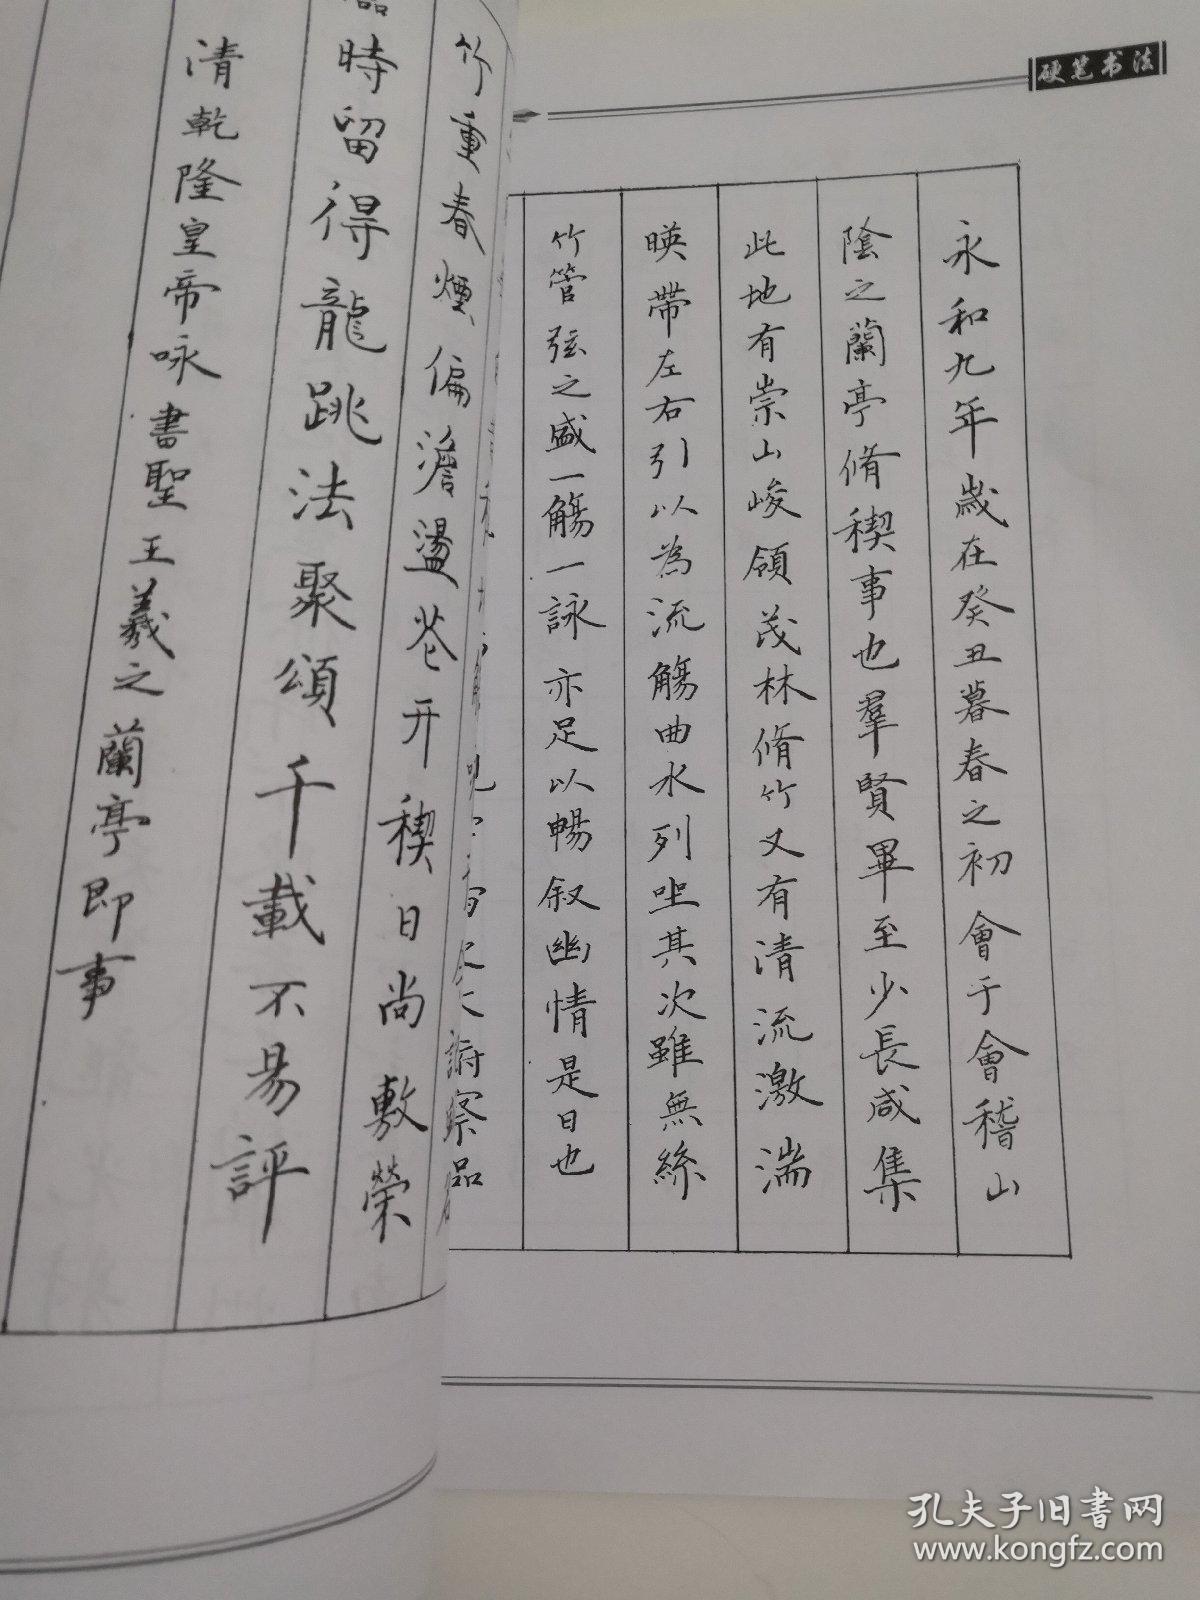 硬笔书法
永和九年歲在癸丑暮春之初會于會稽山
陰之蘭亭脩稧事也羣賢畢至少長咸集
此地有崇山峻領茂林脩竹又有清流激湍
暎帶左右引以為流觴曲水列坐其次雖無絲
竹管弦之盛一觴一詠亦足以暢叙幽情是日也
察品
竹重春煙偏澹盪花开稧日尚敷榮
時留得龍跳法聚頌千載不易評
清乾隆皇帝咏書聖王羲之蘭亭即事
孔夫子旧書网
www.kongfz.com